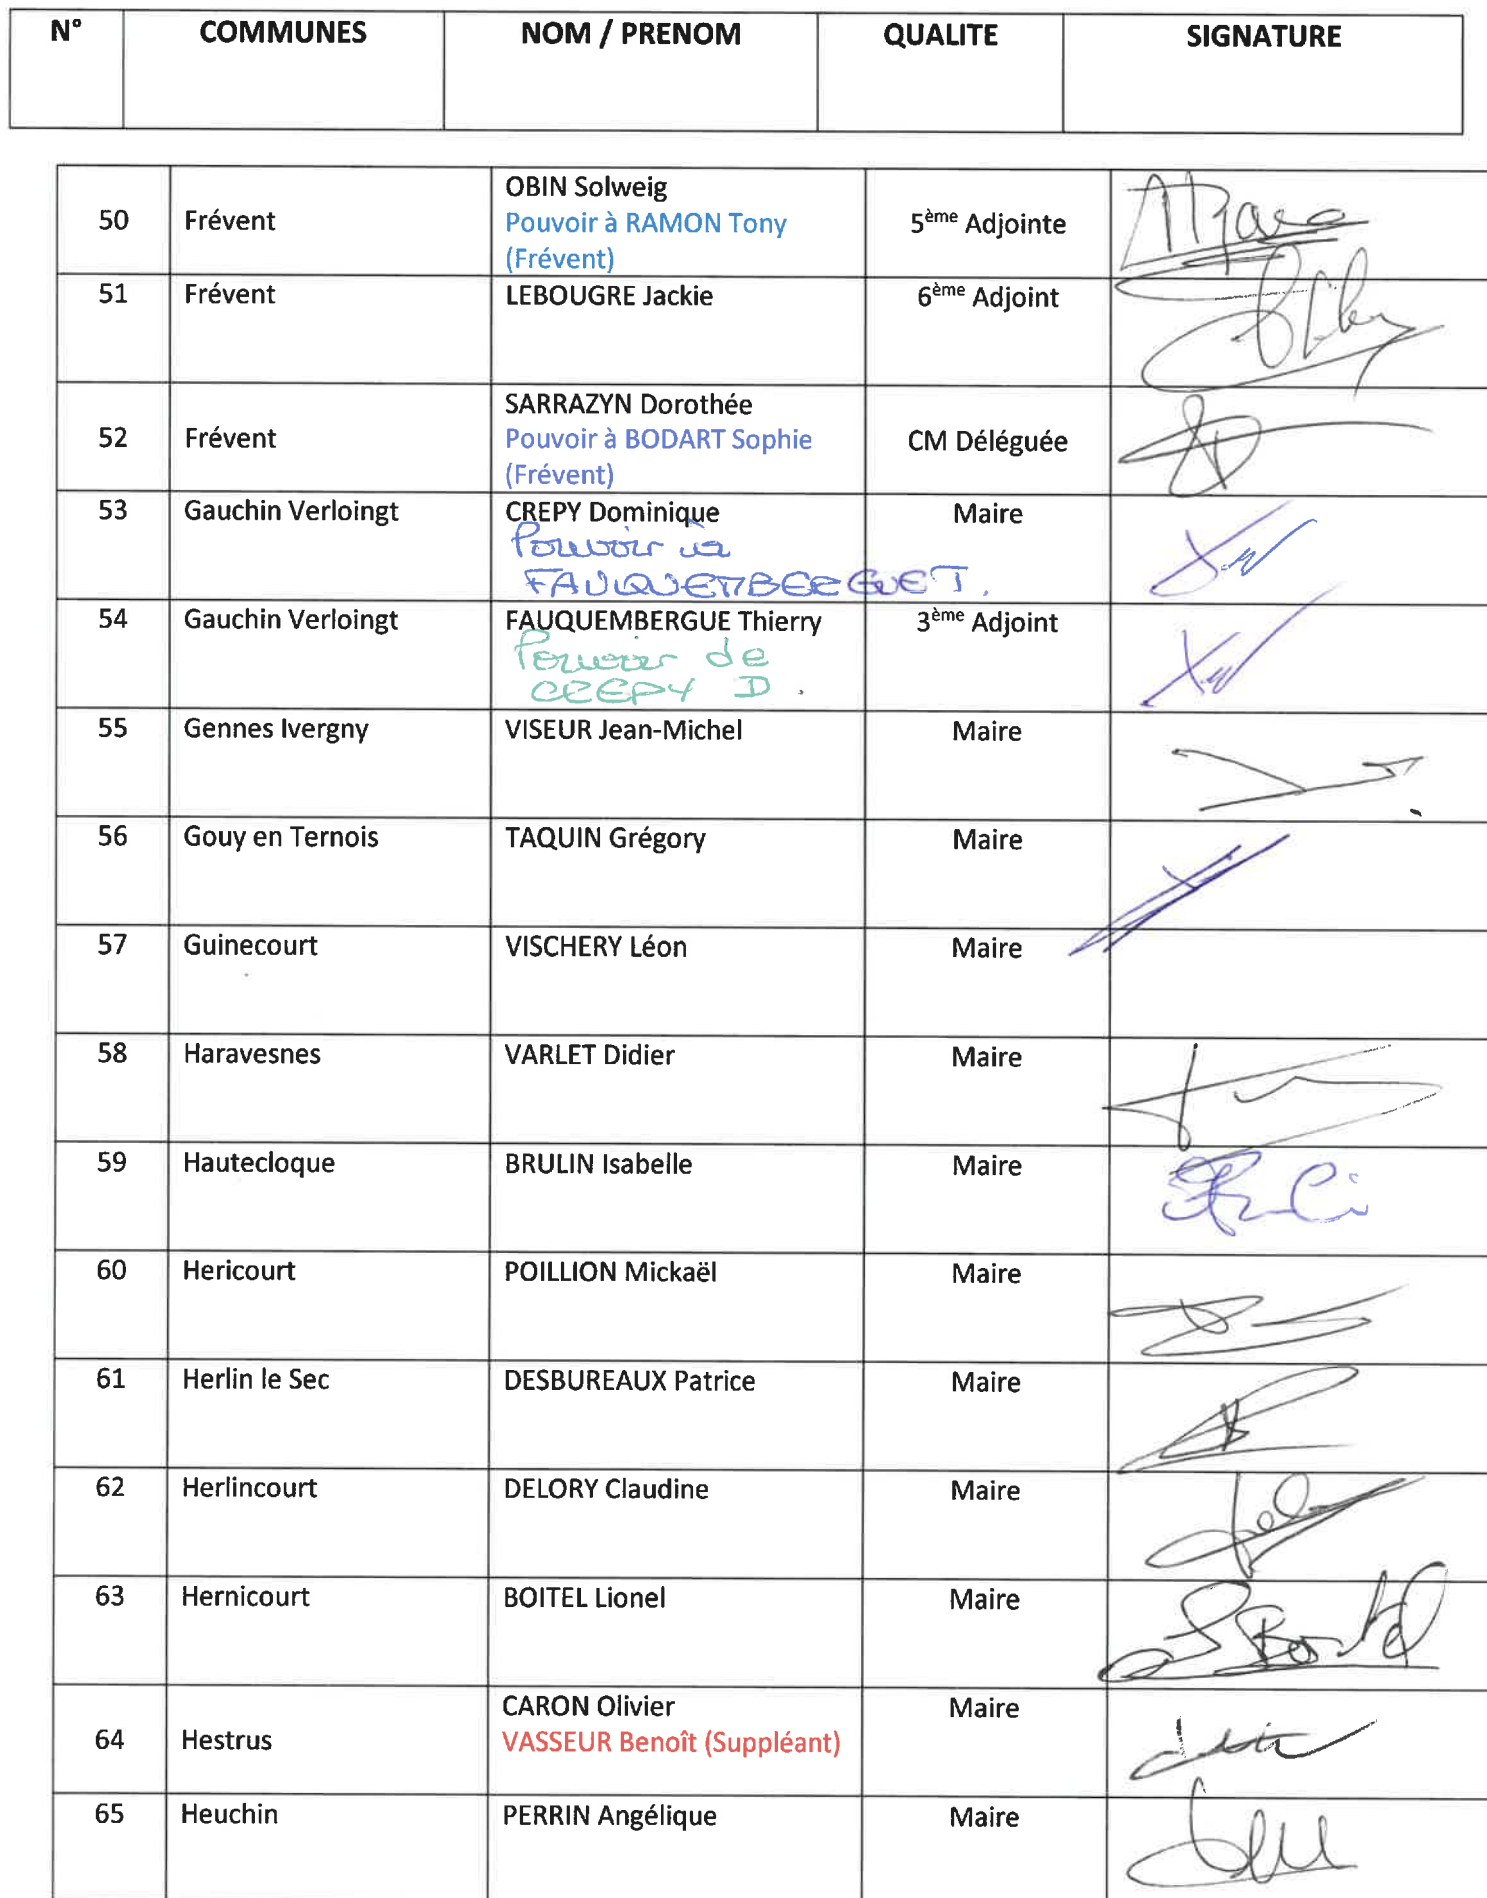 N° COMMUNES NOM / PRENOM QUALITE SIGNATURE
OBIN Solweig
50 Frévent Pouvoir à RAMON Tony 5ème Adjointe
(Frévent)
51 Frévent LEBOUGRE Jackie 6ème Adjoint
SARRAZYN Dorothée
52 Frévent Pouvoir à BODART Sophie CM Déléguée
(Frévent)
53 Gauchin Verloingt CREPY Dominique Maire
Pouvoir à
FAUQUEMBERGUET.
54 Gauchin Verloingt FAUQUEMBERGUE Thierry 3ème Adjoint
Pouvoir de
CREPY D.
55 Gennes Ivergny VISEUR Jean-Michel Maire
56 Gouy en Ternois TAQUIN Grégory Maire
57 Guinecourt VISCHERY Léon Maire
58 Haravesnes VARLET Didier Maire
59 Hautecloque BRULIN Isabelle Maire
60 Hericourt POILLION Mickaël Maire
61 Herlin le Sec DESBUREAUX Patrice Maire
62 Herlincourt DELORY Claudine Maire
63 Hernicourt BOITEL Lionel Maire
CARON Olivier Maire
64 Hestrus VASSEUR Benoît (Suppléant)
65 Heuchin PERRIN Angélique Maire